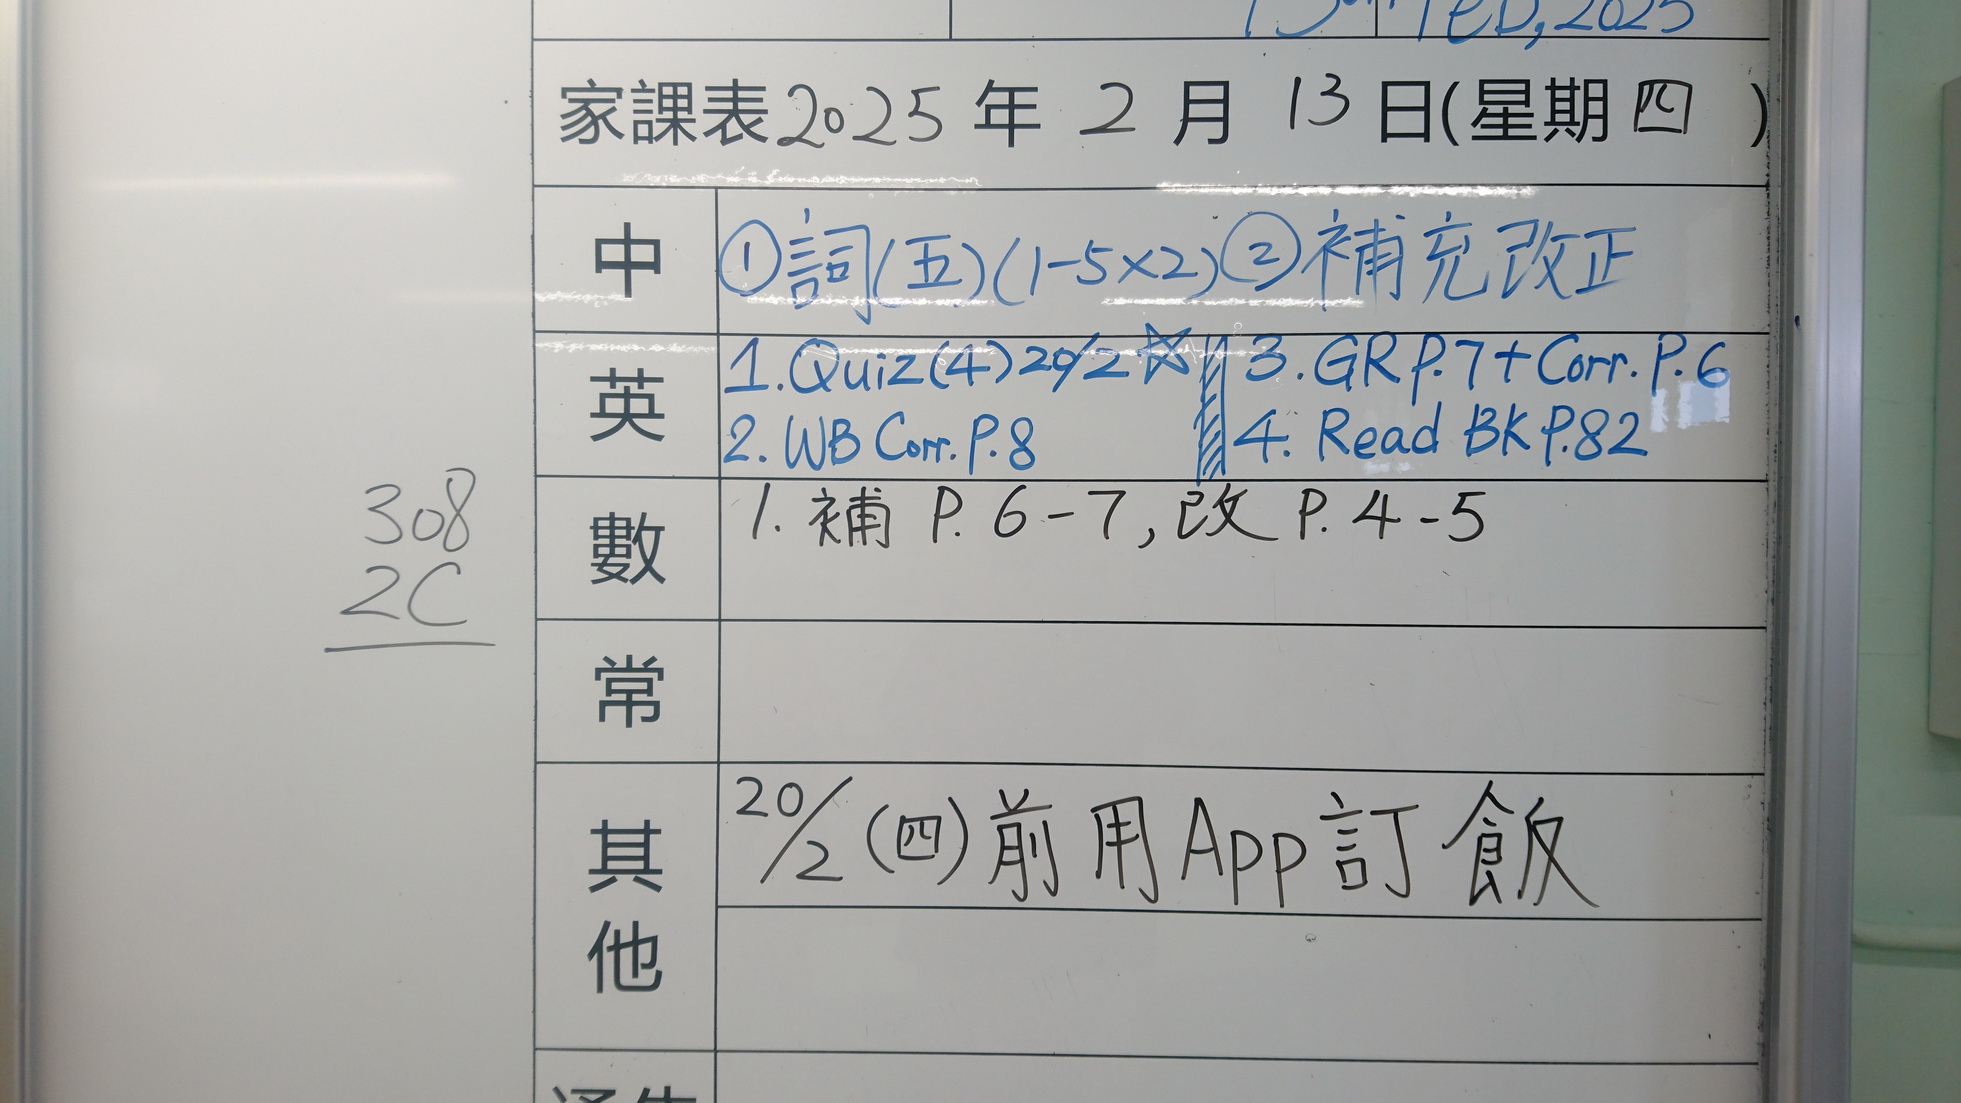 13th Feb, 2025
家課表2025年 2 月 13 日(星期四 )
中 ①詞(五)(1-5×2)②補充改正
英 1.Quiz(4)20/2☆ 3.GR P.7+Corr. P.6
2. WB Corr. P.8 4. Read BK P.82
數 1. 補 P. 6-7, 改 P. 4-5
308
2C
常
其他 20/2 (四)前用App訂飯
通告